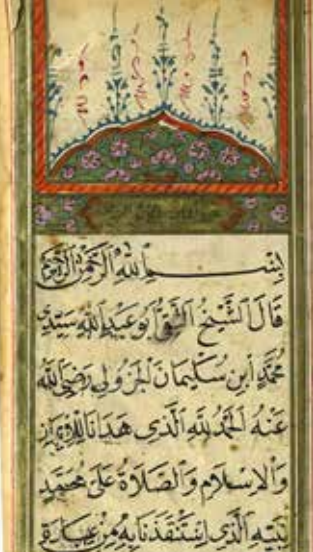 بِسْمِ اللهِ الرَّحْمٰنِ الرَّحِيمِ
قَالَ الشَّيْخُ التَّقِيُّ اَبُو عَبْدِ اللهِ سَيِّدِي
مُحَمَّدِ ابْنِ سُلَيْمَانَ الْجَزُولِي رَضِيَ اللهُ
عَنْهُ الْحَمْدُ لِلّٰهِ الَّذِي هَدَانَا لِلْاِيمَانِ
وَالْاِسْلَامِ وَالصَّلَاةُ عَلَى مُحَمَّدٍ
نَبِيِّهِ الَّذِي اِسْتَنْقَذَنَا بِهِ مِنْ عِبَادَةِ